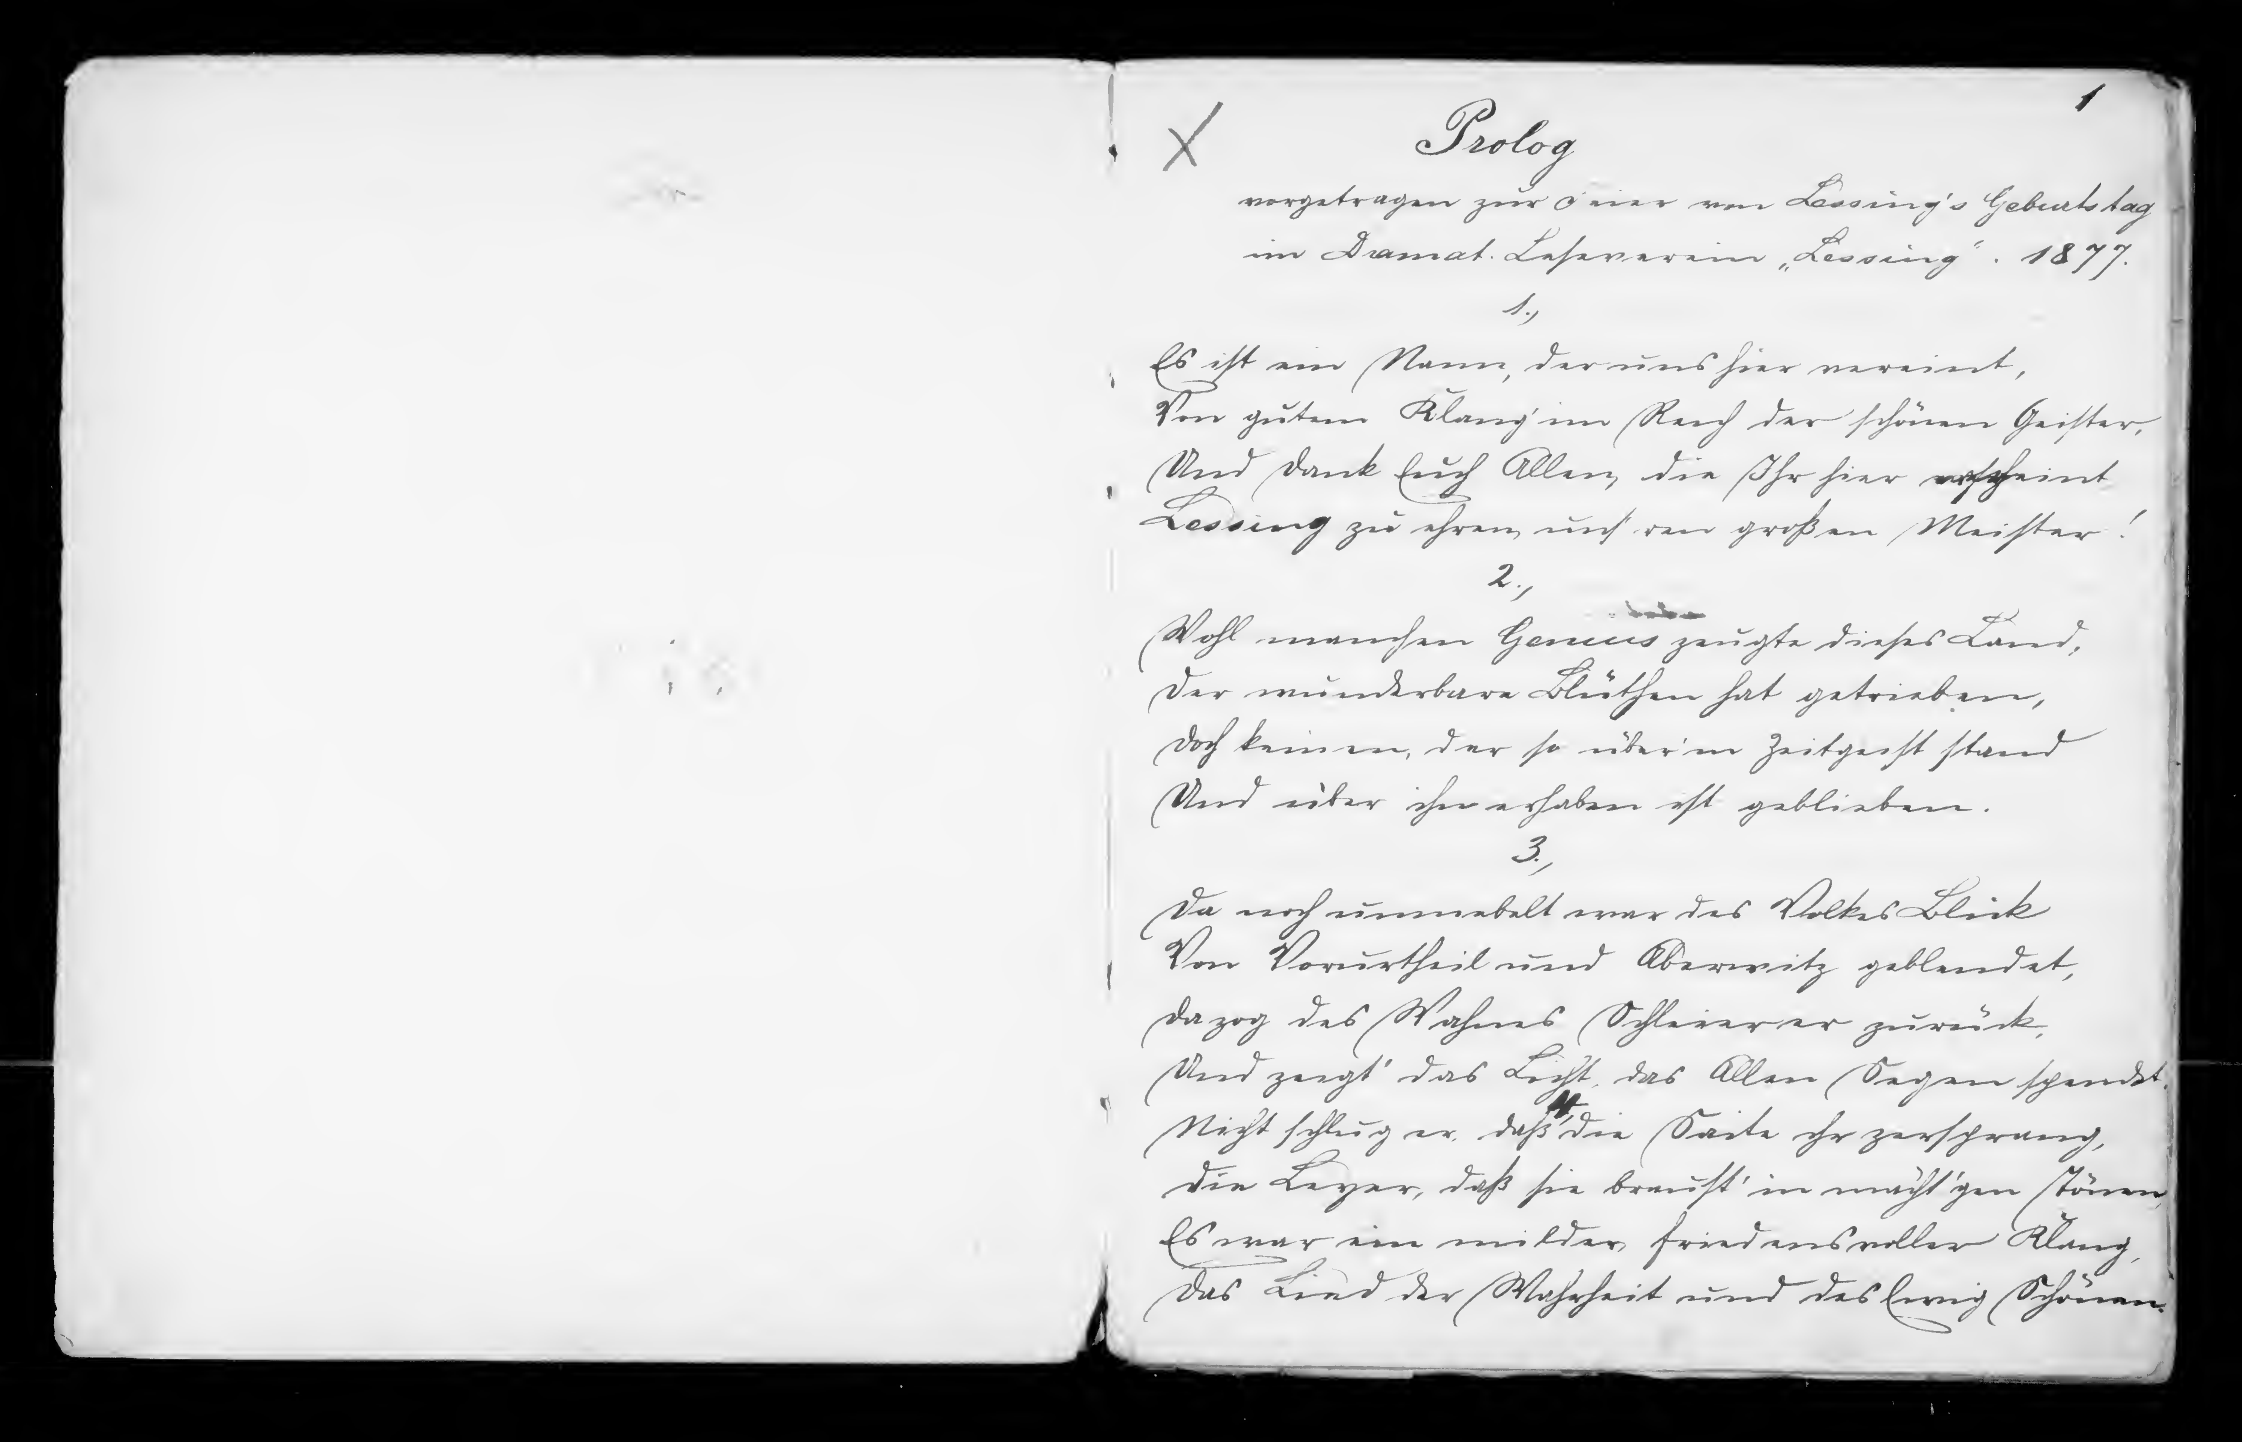 1
Prolog
vorgetragen zur Feier von Lessing's Geburtstag
im Dramat. Leseverein „Lessing“. 1877.
1.,
Es ist ein Mann, der uns hier vereint,
Von gutem Klang im Reich der schönen Geister,
Und dank Euch Allen, die Ihr hier erscheint
Lessing zu ehren, uns'ren großen Meister!
2.,
Wohl manchen Genius zeugte dieses Land,
Der wunderbare Blüthen hat getrieben,
Doch keinen, der so über'm Zeitgeist stand
Und über ihn erhaben ist geblieben.
3.,
Da noch umnebelt war des Volkes Blick
Von Vorurtheil und Aberwitz geblendet,
Da zog des Wahnes Schleier er zurück,
Und zeigt' das Licht, das Allen Segen spendet.
4.,
Nicht schlug er, daß die Saite ihr zersprang,
Die Leyer, daß sie braust' in mächt'gen Tönen,
Es war ein milder, friedensvoller Klang,
Das Lied der Wahrheit und des Ewig Schönen.